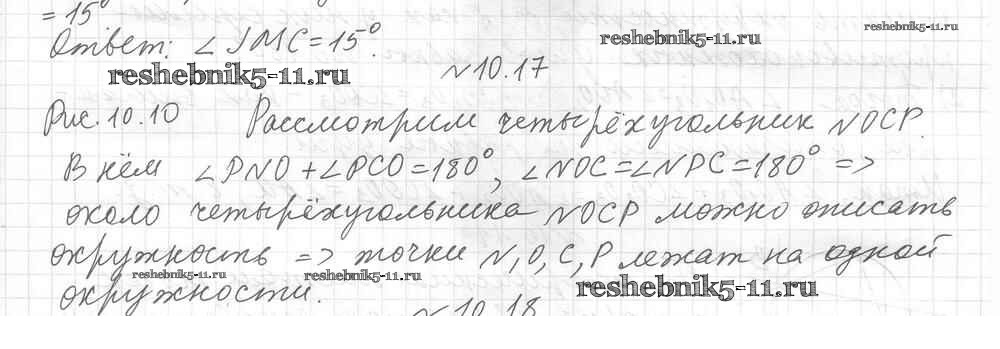 = 15°
Ответ: ∠JMC = 15°.
reshebnik5-11.ru
reshebnik5-11.ru
reshebnik5-11.ru
№10.17
Рис. 10.10 Рассмотрим четырёхугольник NOCP.
В нём ∠PNO + ∠PCO = 180°, ∠NOC = ∠NPC = 180° =>
около четырёхугольника NOCP можно описать
окружность => точки N, O, C, P лежат на одной
reshebnik5-11.ru
reshebnik5-11.ru
reshebnik5-11.ru
окружности.
№10.18